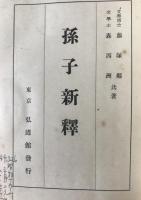 文學博士 藤塚鄰
文學士 森西洲 共著
孫子新釋
東京 弘道館發行